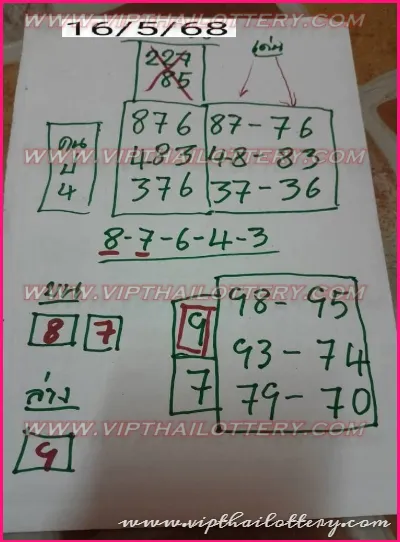 16/5/68
WWW.VIPTHAILOTTERY.COM
227
85
เด่น
876 87-76
บน
4
WWW.VIPTHAILOTTERY.COM
483 48-83
376 37-36
8-7-6-4-3
WWW.VIPTHAILOTTERY.COM
บน
8 7
9 98-95
93-74
7 79-70
ล่าง
WWW.VIPTHAILOTTERY.COM
9
www.vipthailottery.com